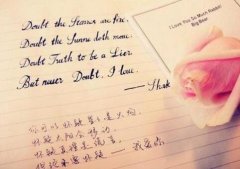 Doubt the Starres are fire,
Doubt the Sunne doth move,
Doubt Truth to be a Lier,
But neuer Doubt, I love.
—— Shak
I Love You So Much Rabbit!
Big Bear
你可以怀疑星星是火焰
怀疑太阳会移动
怀疑真理是谎言
怀疑 —— 我爱你